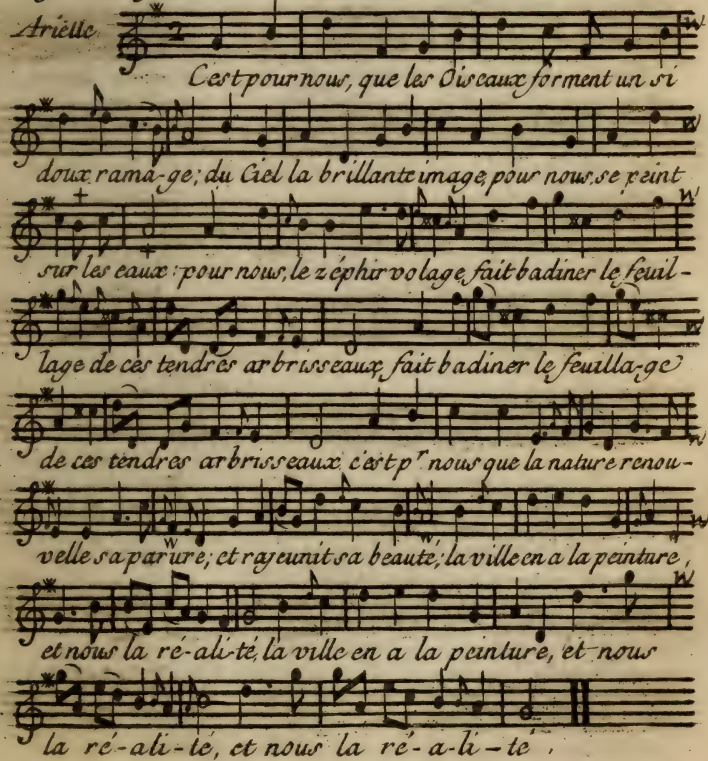 Ariette
2
C'est pour nous, que les Oiseaux forment un si
doux rama-ge; du Ciel la brillante image, pour nous, se peint
sur les eaux: pour nous, le zéphir volage, fait badiner le feuil-
lage de ces tendres arbrisseaux, fait badiner le feuilla-ge
de ces tendres arbrisseaux. c'est pr nous que la nature renou-
velle sa parure; et rajeunit sa beauté; la ville en a la peinture,
et nous la ré-ali-té, la ville en a la peinture, et nous
la ré-ali-té, et nous la ré-a-li-té.